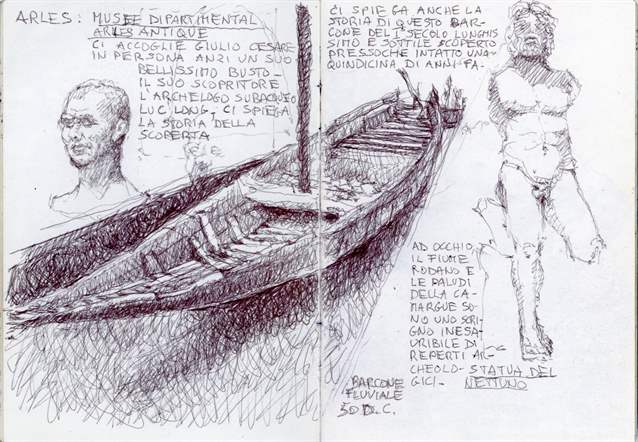 ARLES: MUSEE DIPARTIMENTAL
ARLES ANTIQUE
CI ACCOGLIE GIULIO CESARE
IN PERSONA ANZI UN SUO
BELLISSIMO BUSTO-
IL SUO SCOPRITORE
L'ARCHELOGO SUBACQUEO
LUC LONG, CI SPIEGA
LA STORIA DELLA
SCOPERTA
CI SPIEGA ANCHE LA
STORIA DI QUESTO BAR-
CONE DEL I SECOLO LUNGHIS
SIMO E SOTTILE SCOPERTO
PRESSOCHE INTATTO UNA
QUINDICINA DI ANNI FA-
AD OCCHIO,
IL FIUME
RODANO E
LE PALUDI
DELLA CA-
MARGUE SO-
NO UNO SCRI-
GNO INESA-
URIBILE DI
REPERTI AR-
CHEOLO-
GICI-
STATUA DEL
NETTUNO
BARCONE
FLUVIALE
50 D.C.